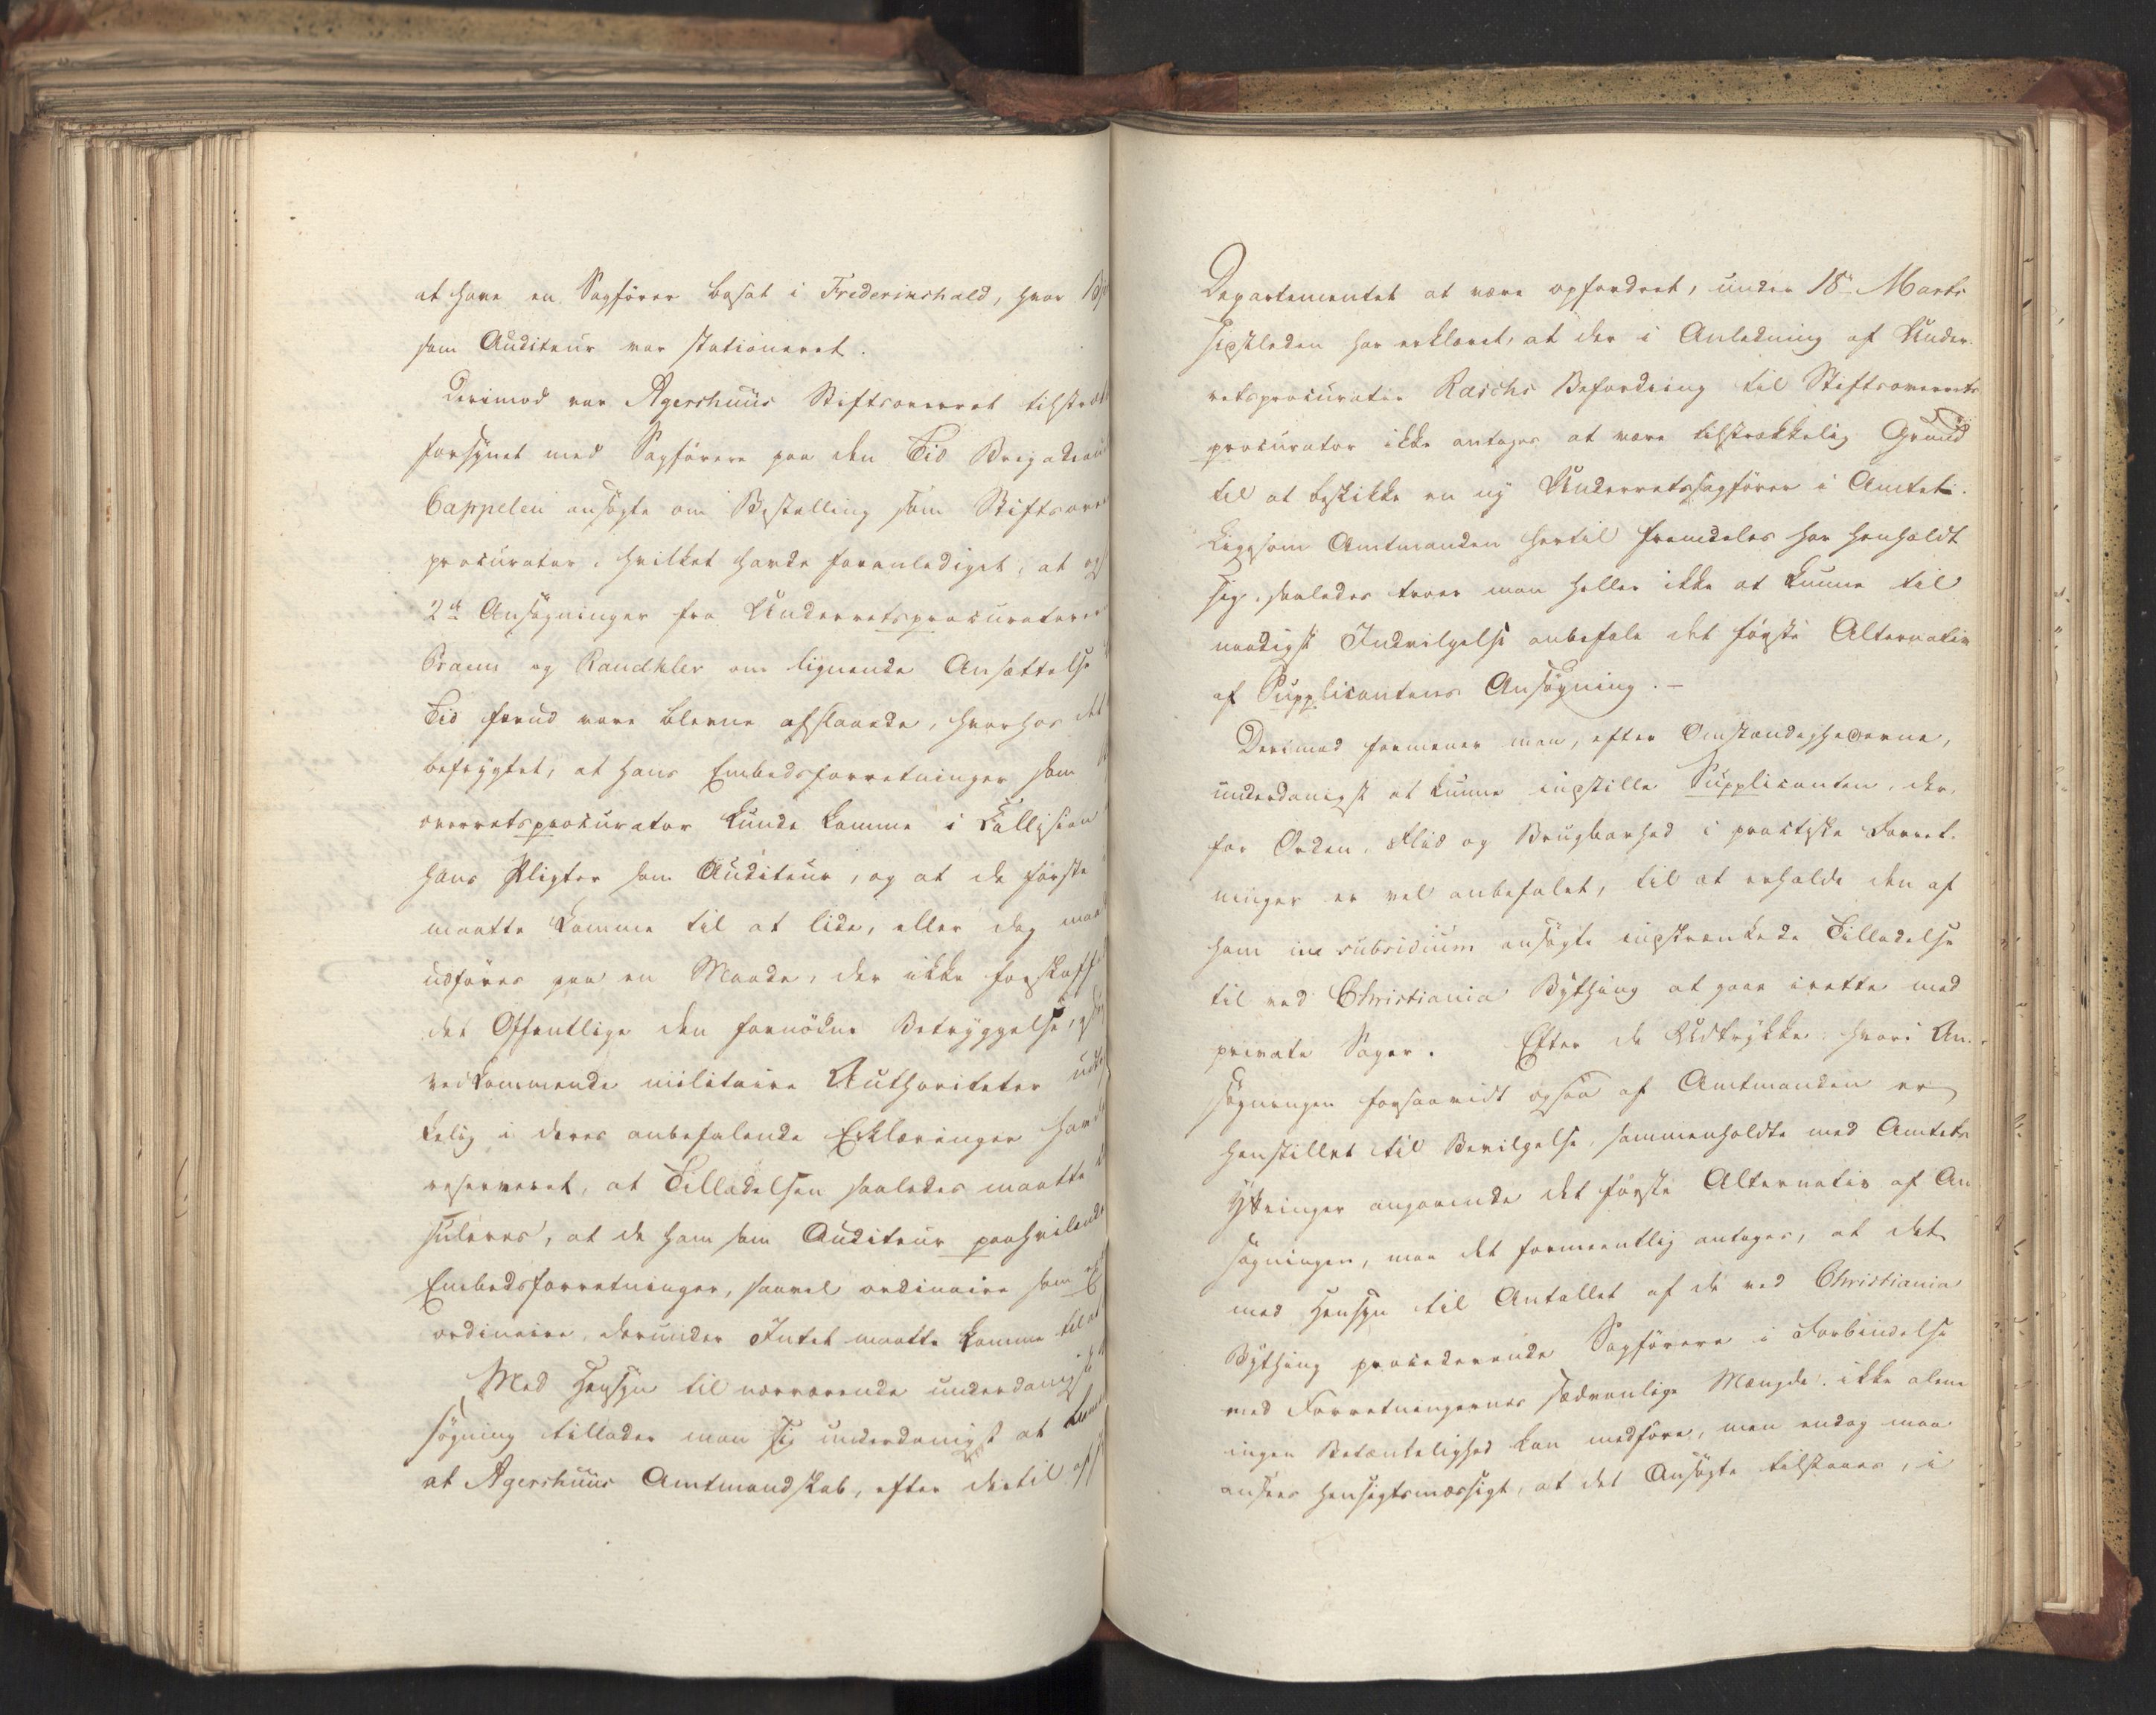 at have en Sagfører bosat i Frederikshald, hvor
som Auditeur var stationeret.
Derimod var Agershuus Stiftsoverret tilstræk
forsynet med Sagførere paa den Tid Brigadeaud
Cappelen ansøgte om Bestalling som Stiftsover
procurator, hvilket havde foranlediget, at og
2de Ansøgninger fra Underretsprocuratorer
Praem og Randkler om lignende Ansættelse
Tid forud vare blevne afslaaede, hvorhos det
befrygtet, at hans Embedsforretninger som
overretsprocurator kunde komme i Collision
hans Pligter som Auditeur, og at de første
maatte komme til at lide, eller dog maa
udføres paa en Maade, der ikke forskaff
det Offentlige den fornødne Betryggelse,
vedkommende militaire Authoriteter udtr
kelig i deres anbefalende Erklæringer hav
reserveret, at Tilladelsen saaledes maatte
suleres, at de ham som Auditeur paahvilende
Embedsforretninger, saavel ordinaire som
ordinaire, derunder Intet maatte komme til at
Med Hensyn til nærværende underdanigst
søgning tillader man sig underdanigst at
at Agershuus Amtmandskab, efter dertil af
Departementet at være opfordret, under 18de Marts
sidstleden har erklæret, at der i Anledning af Under-
retsprocurator Raschs Befordring til Stiftsoverrets
procurator ikke antages at være tilstrækkelig Grund
til at beskikke en ny Underretssagfører i Amtet.
Ligesom Amtmanden hertil fremdeles har henholdt
sig, saaledes troer man heller ikke at kunne til
naadigst Indvilgelse anbefale det første Alternativ
af Supplicantens Ansøgning. –
Derimod formener man, efter Omstændighederne,
underdanigst at kunne indstille Supplicanten, der,
for Orden, Flid og Brugbarhed i practiske Forret-
ninger er vel anbefalet, til at erholde den af
ham in subsidium ansøgte indskrænkede Tilladelse
til ved Christiania Bything at gaae irette med
private Sager. Efter de Udtrykke, hvori An-
søgningen forsaavidt ogsaa af Amtmanden er
henstillet til Bevilgelse, sammenholdte med Amtets
Yttringer angaaende det første Alternativ af An
søgningen, maa det formeentlig antages, at det
med Hensyn til Antallet af de ved Christiania
Bything procederende Sagførere i Forbindelse
med Forretningernes sædvanlige Mængde, ikke alene
ingen Betænkelighed kan medføre, men endog maa
ansees hensigtsmæssigt, at det Ansøgte tilstaaes, i